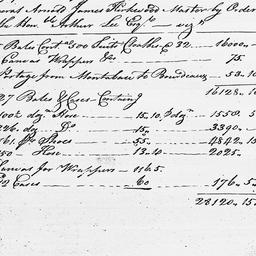 Arnold James Kirkwood Master by Order
the Hon. ble Arthur Lee Esq. — viz
Bales Cont. a 500 Suits Cloaths @ 32 — 16000 —
Canvas Wrappers &c — 75
Portage from Montabase to Bourdeaux — 53.10
16128.10
27 Bales & Cases Containg
doz. Hose — 15.10 doz — 1550.5
226 doz. Do — 15 — 3390
161 Do Shoes — 55 — 4842.15
150 — Hose — 13.10 — 2025
Canvas for Wrappers — 116.5
22 Cases — 60 — 176.5
28120.15